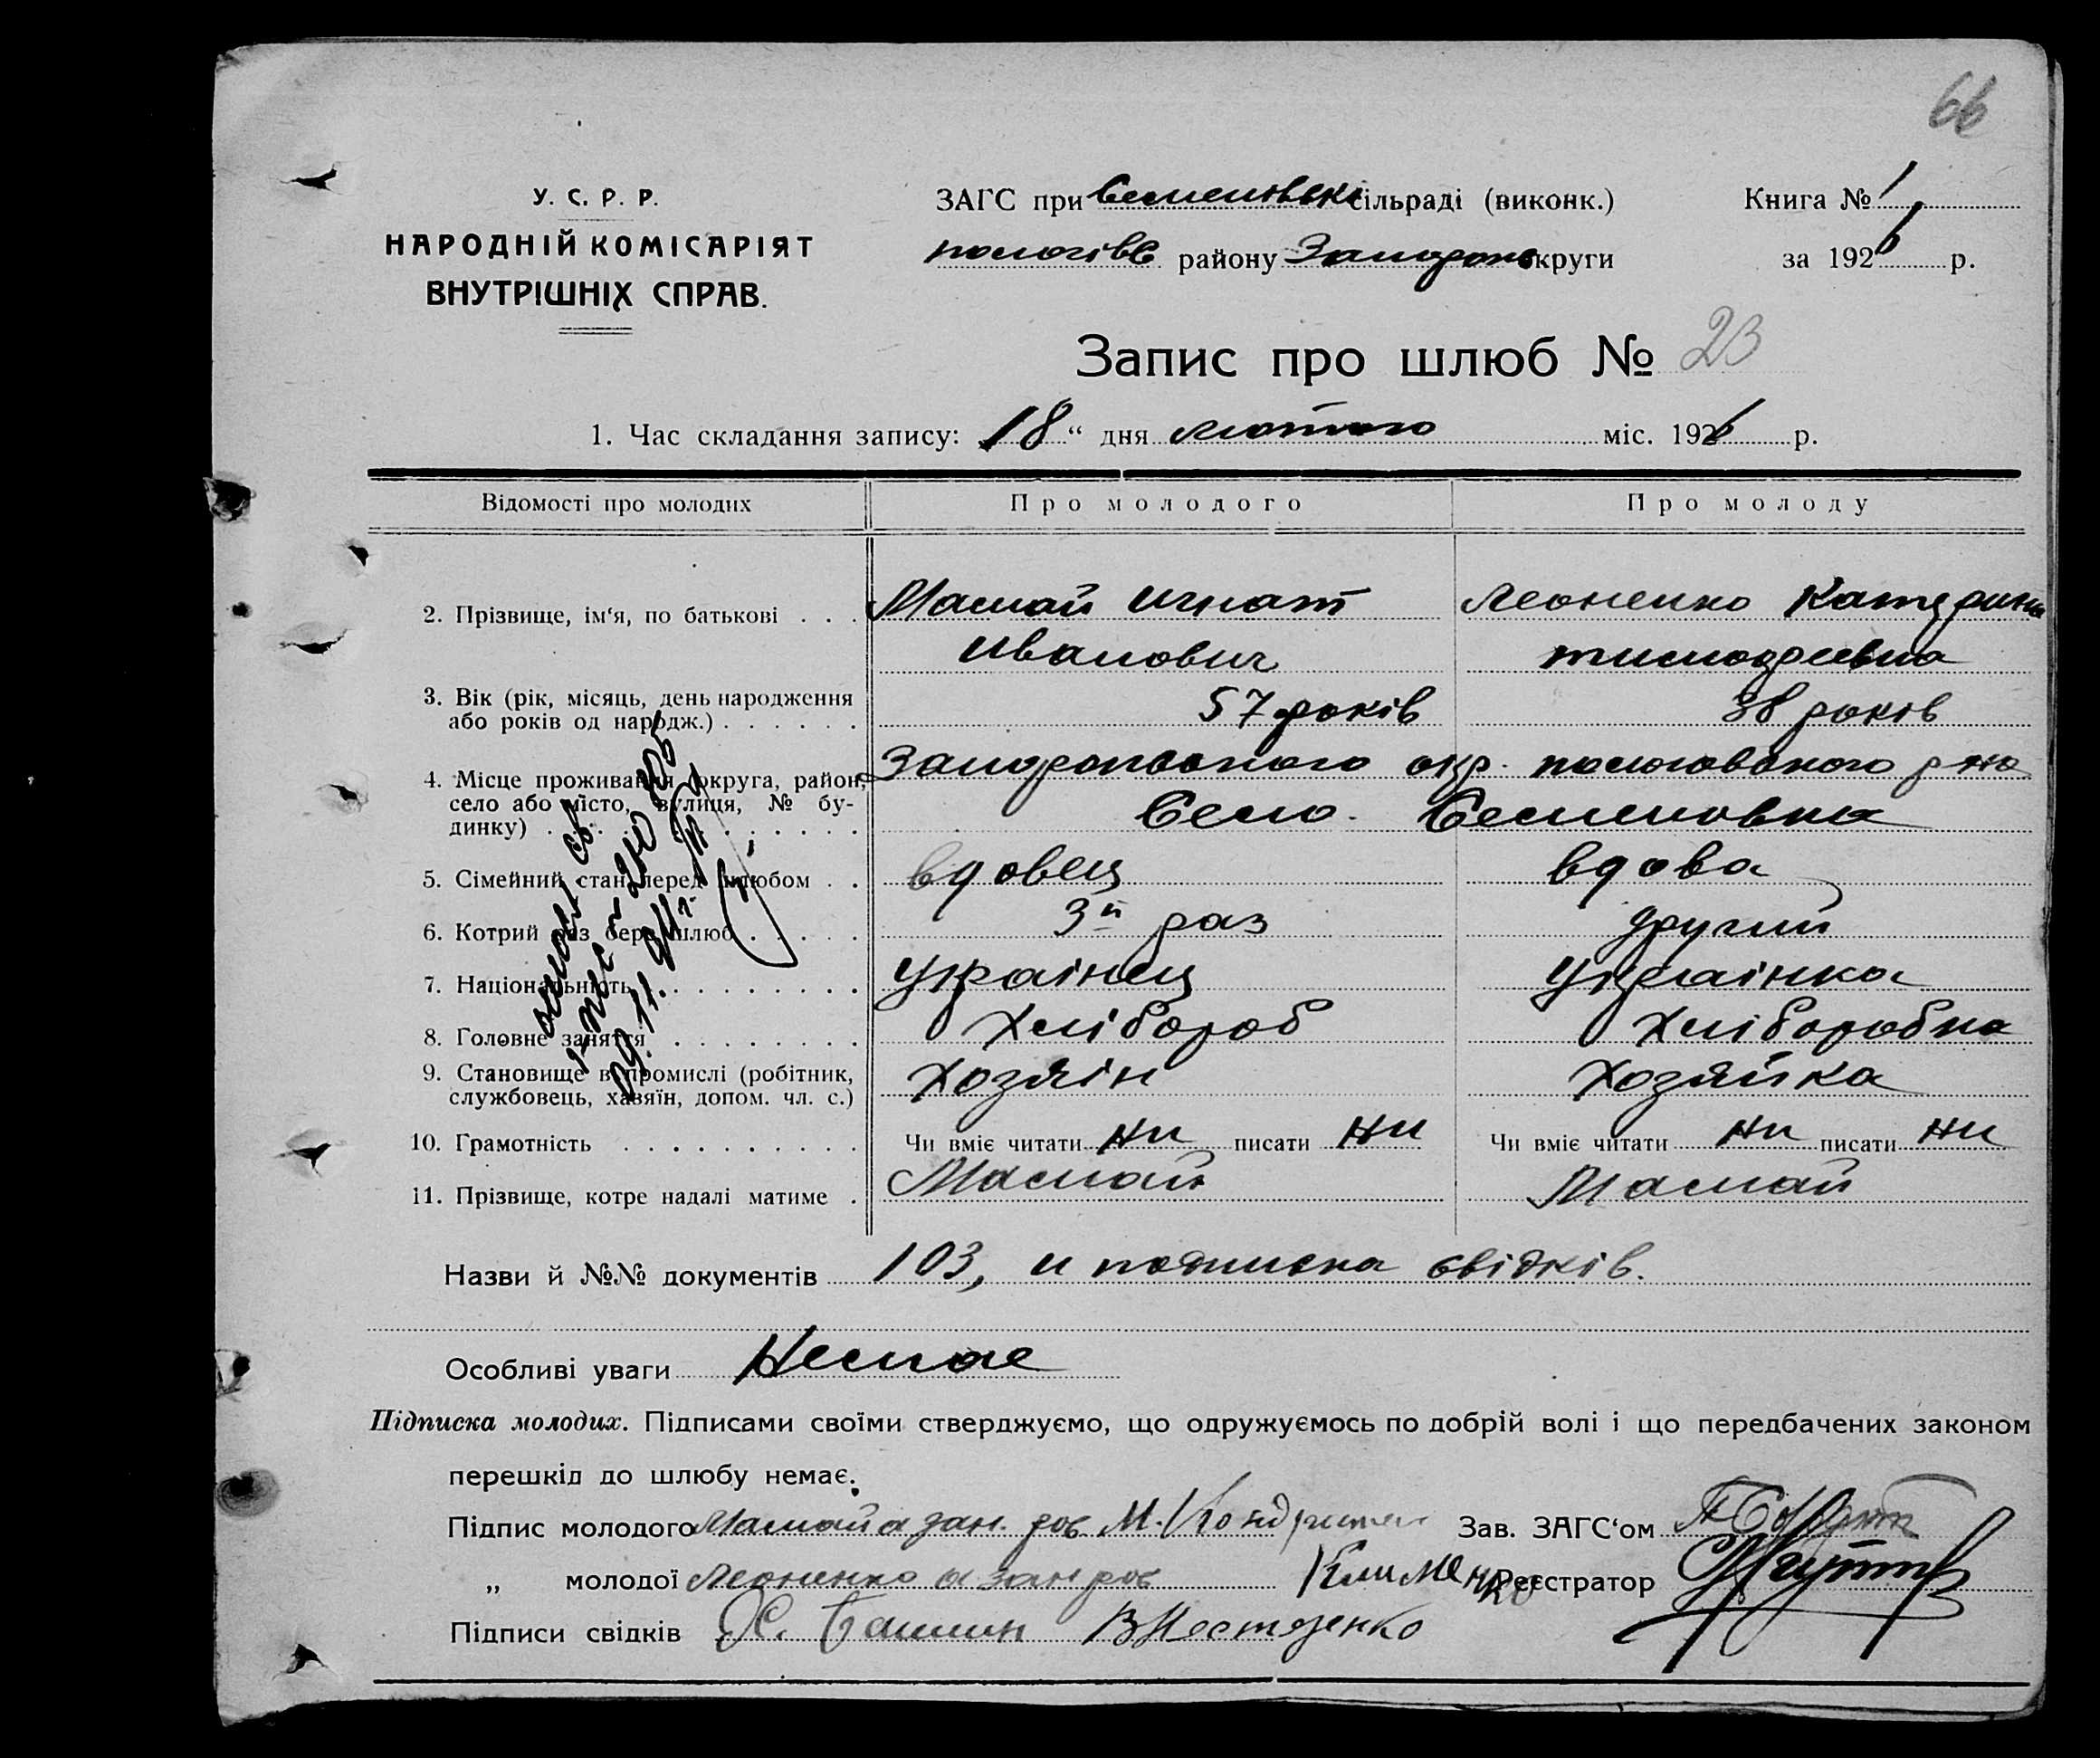 66
У. С. Р. Р.
НАРОДНІЙ КОМІСАРІЯТ
ВНУТРІШНІХ СПРАВ.
ЗАГС при Семеновскі сільраді (виконк.)
пологівс району Запороз округи
Книга № 1
за 1926 р.
Запис про шлюб № 23
1. Час складання запису: 18 “ дня лютого міс. 1926 р.
Відомості про молодих Про молодого Про молоду
2. Прізвище, ім‘я, по батькові . . . Мамай Игнат Леоненко Катерина
Иванович тимофеевна
3. Вік (рік, місяць, день народження
або років од народж.) . . . . . . 57 років 38 років
4. Місце проживання (округа, район,
село або місто, вулиця, № бу-
динку) . . . . . . . . . . . .
окр. пологовского рно
Село. Семеновка
5. Сімейний стан перед шлюбом . . вдовец вдова
6. Котрий раз бере шлюб . . . . . 3й раз другий
7. Національність . . . . . . . . . украінец украінка
8. Головне заняття . . . . . . . . хлібороб хліборобка
9. Становище в промислі (робітник,
службовець, хазяїн, допом. чл. с.) хозяін хозяйка
10. Грамотність . . . . . . . . . . Чи вміє читати ни писати ни Чи вміє читати ни писати ни
11. Прізвище, котре надалі матиме . Мамай Мамай
Назви й №№ документів 103, и подписка свідків.
Особливі уваги Немае
Підписка молодих. Підписами своїми стверджуємо, що одружуємось по добрій волі і що передбачених законом
перешкід до шлюбу немає.
Підпис молодого Мамай а зан. рос М. Зав. ЗАГС‘ом
„ молодої Леоненко а зан рос Клименко Реєстратор
Підписи свідків Х. В Нестеренко